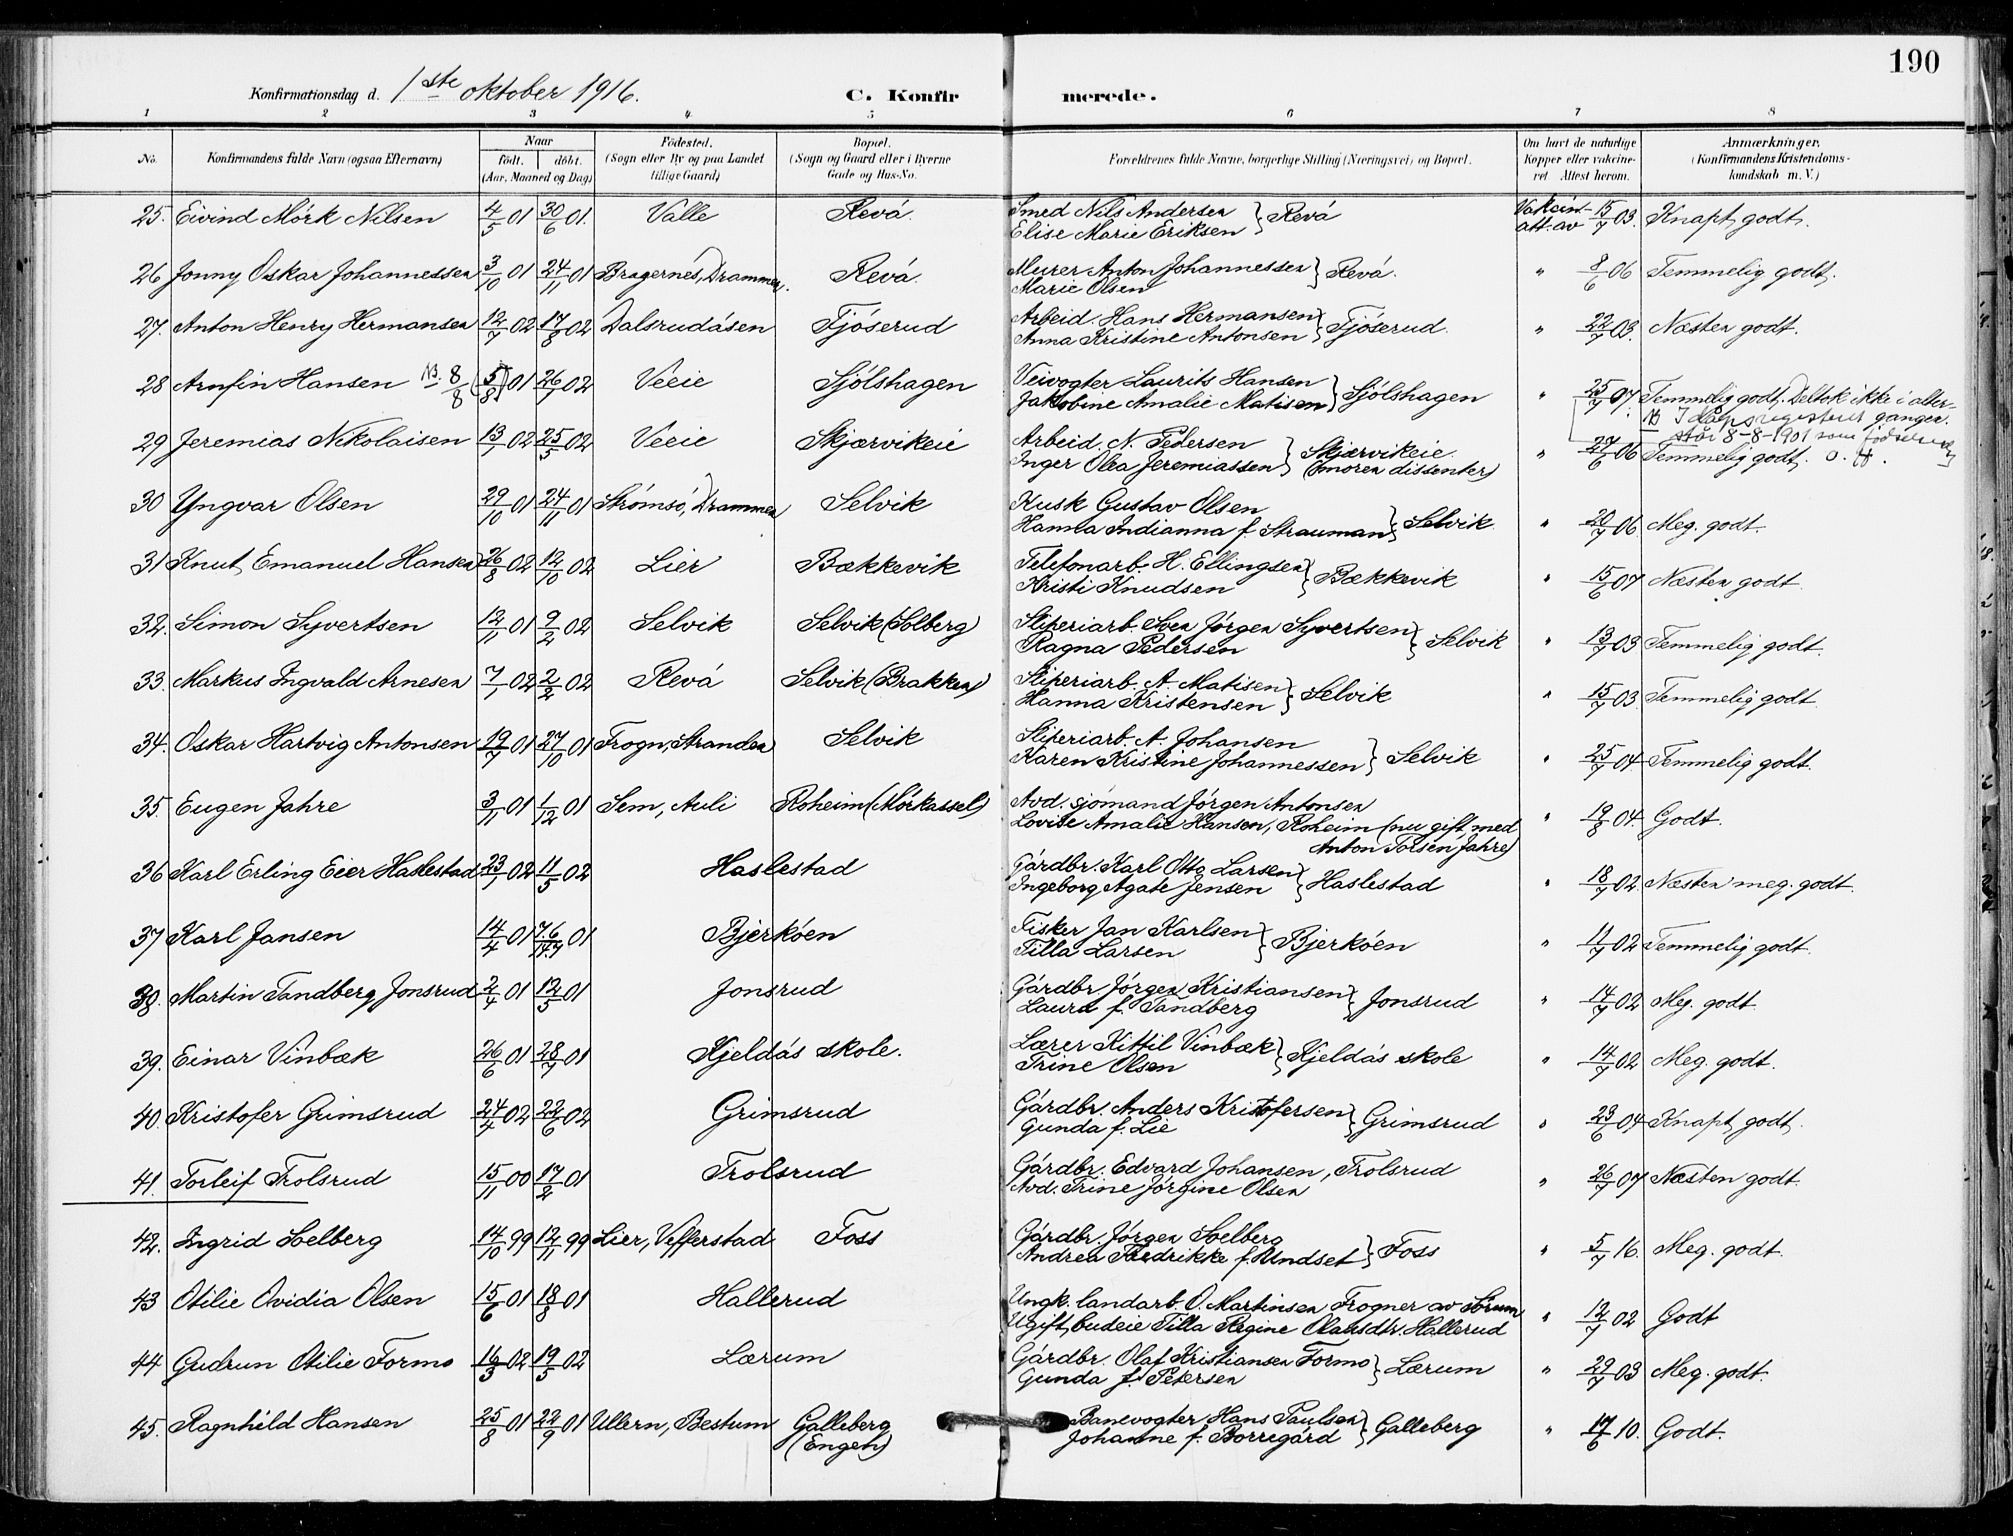 190
Konfirmationsdag d. 1ste oktober 1916. C. Konfirmerede.
1 2 3 4 5 6 7 8
No. Konfirmandens fulde Navn (ogsaa Efternavn) Naar födt. döbt. (Aar, Maaned og Dag) Födested. (Sogn eller By og paa Landet tillige Gaard) Bopæl. (Sogn og Gaard eller i Byerne Gade og Hus-No. Forældrenes fulde Navne, borgerlige Stilling (Næringsvei) og Bopæl. Om havt de naturlige Kopper eller vakcineret. Attest herom. Anmærkninger, (Konfirmandens Kristendomskundskab m. V.)
25. Eivind Mörk Nilsen 4/5 01 30/6 01. Valle Revå. Smed Nils Andersen } Revå Vakcin. 15/7 03. Knapt godt.
Elise Marie Eriksen att. av
26 Jonny Oskar Johannessen 3/10 01 24/11 01 Bragernes, Drammen. Revå. Murer Anton Johannessen } Revå. " 8/6 06 Temmelig godt.
Marie Olsen
27. Anton Henry Hermansen 12/7 02 17/8 02 Dalsrudåsen Tjöserud Arbeid. Hans Hermansen } Tjöserud. " 22/7 03. Næsten godt.
Anna Kristine Antonsen
28 Arnfin Hansen NB. 8/8 (5/8) 01 26/1 02 Veeie Sjölshagen Veivogter Laurits Hansen } Sjölshagen " 25/7 07 Temmelig godt. Deltok ikke i alter-
Jakobine Amalie Matisen gangen.
NB I dåpsregisteret
står 8-8-1901 som fødselsdag
29 Jeremias Nikolaisen 13/1 02 25/5 02 Veeie Skjærvikeie Arbeid. N. Pedersen } Skjærvikeie. " 27/6 06 Temmelig godt. O. H.
Inger Olea Jeremiassen (moren dissenter)
30 Yngvar Olsen 29/10 01 24/11 01 Strömsö, Drammen Selvik Kusk Gustav Olsen } Selvik. " 20/7 06. Meg. godt.
Hanna Indianna f. Strauman
31 Knut Emanuel Hansen 26/8 02 12/10 02 Lier Bækkevik Telefonarb. H. Ellingsen } Bækkevik " 15/6 07 Næsten godt.
Kristi Knudsen
32. Simon Syvertsen 12/11 01 9/2 02 Selvik Selvik (Solberg) Sliperiarb. Sven Jörgen Syvertsen } Selvik " 13/7 03 Temmelig godt.
Ragna Pedersen
33. Markus Ingvald Arnesen 7/1 02 2/2 02 Revå Selvik (Brakken) Sliperiarb. A. Matisen } Selvik " 15/7 03. Temmelig godt.
Hanna Kristensen
34. Oskar Hartvig Antonsen 19/7 01 27/10 01 Frogn, Stranden Selvik Sliperiarb. A. Johansen } Selvik " 25/7 04. Temmelig godt.
Karen Kristine Johannessen
35. Eugen Jahre 3/11 01 1/12 01 Sem, Auli Roheim (Mörkassel) Avd. sjömand Jörgen Antonsen " 19/8 04. Godt.
Lovise Amalie Hansen, Roheim (nu gift med
Anton Torsen Jahre)
36 Karl Erling Eier Haslestad 23/1 02 11/5 02 Haslestad Gårdbr. Karl Otto Larsen } Haslestad " 18/7 02. Næsten meg. godt.
Ingeborg Agate Jensen
37 Karl Jansen 14/4 01 7.6/14.7 01 Bjerköen Fisker Jan Karlsen } Bjerköen " 11/7 02 Temmelig godt.
Tilla Larsen
38. Martin Tandberg Jonsrud 2/4 01 12/5 01 Jonsrud Gårdbr. Jörgen Kristiansen } Jonsrud " 14/7 02 Meg. godt
Laura f. Tandberg
39. Einar Vinbæk 26/6 01 28/7 01 Kjeldås skole. Lærer Kittil Vinbæk } Kjeldås skole " 14/7 02 Meg. godt.
Trine Olsen
40. Kristofer Grimsrud 24/4 02 22/6 02 Grimsrud Gårdbr. Anders Kristofersen } Grimsrud " 23/6 04 Knapt godt.
Gunda f. Lie
41. Torleif Trolsrud 15/11 00 17/2 01 Trolsrud Gårdbr. Edvard Johansen, Trolsrud " 26/7 07 Næsten godt.
Avd. Trine Jörgine Olsen
42. Ingrid Solberg 14/10 99 12/11 99 Lier, Vefferstad Foss Gårdbr. Jörgen Solberg } Foss " 5/7 16. Meg. godt.
Andrea Fredrikke f. Undset
43 Otilie Ovidia Olsen 15/6 01 18/8 01 Hallerud Ungk. landarb. O. Martinsen Frogner av Sörum " 12/7 02 Godt
Ugift, budeie Tilla Regine Olausdtr. Hallerud
44 Gudrun Otilie Formo 16/3 02 19/5 02 Lærum Gårdbr. Olaf Kristiansen Formo } Lærum " 29/7 03 Meg. godt.
Gunda f. Petersen
45. Ragnhild Hansen 25/8 01 22/9 01 Ullern, Bestum Galleberg Banevogter Hans Paulsen } Galleberg " 17/6 10. Godt.
(Engen) Johanne f. Borregård